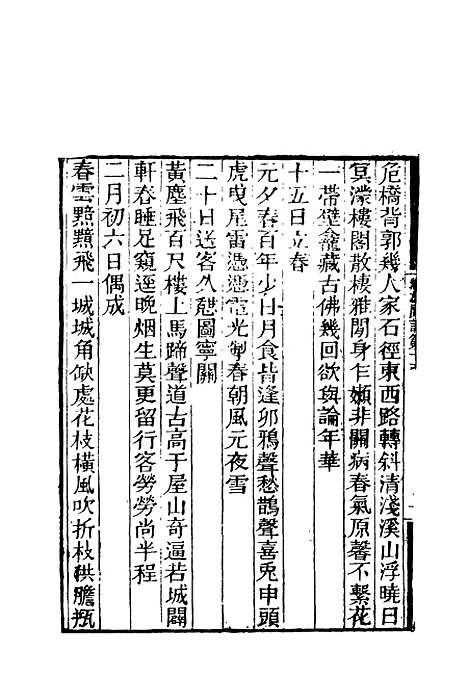 危橋背郭幾人家石徑東西路轉斜清淺溪山浮曉日
冥濛樓閣散棲雅閒身乍嬾非關病春氣原馨不繫花
一帶壁龕藏古佛幾回欲與論年華
十五日立春
元夕春百年少日月食皆逢卯鴉聲愁鵲聲喜兎申頭
虎曳尾雷憑憑電光掣春朝風元夜雪
二十日送客久憩圖寧關
黃塵飛百尺樓上馬蹄聲道古高于屋山奇逼若城闢
軒春睡足窺逕晚烟生莫更留行客勞勞尚半程
二月初六日偶成
春雲黯黮飛一城城角缺處花枝橫風吹折枝供膽瓶